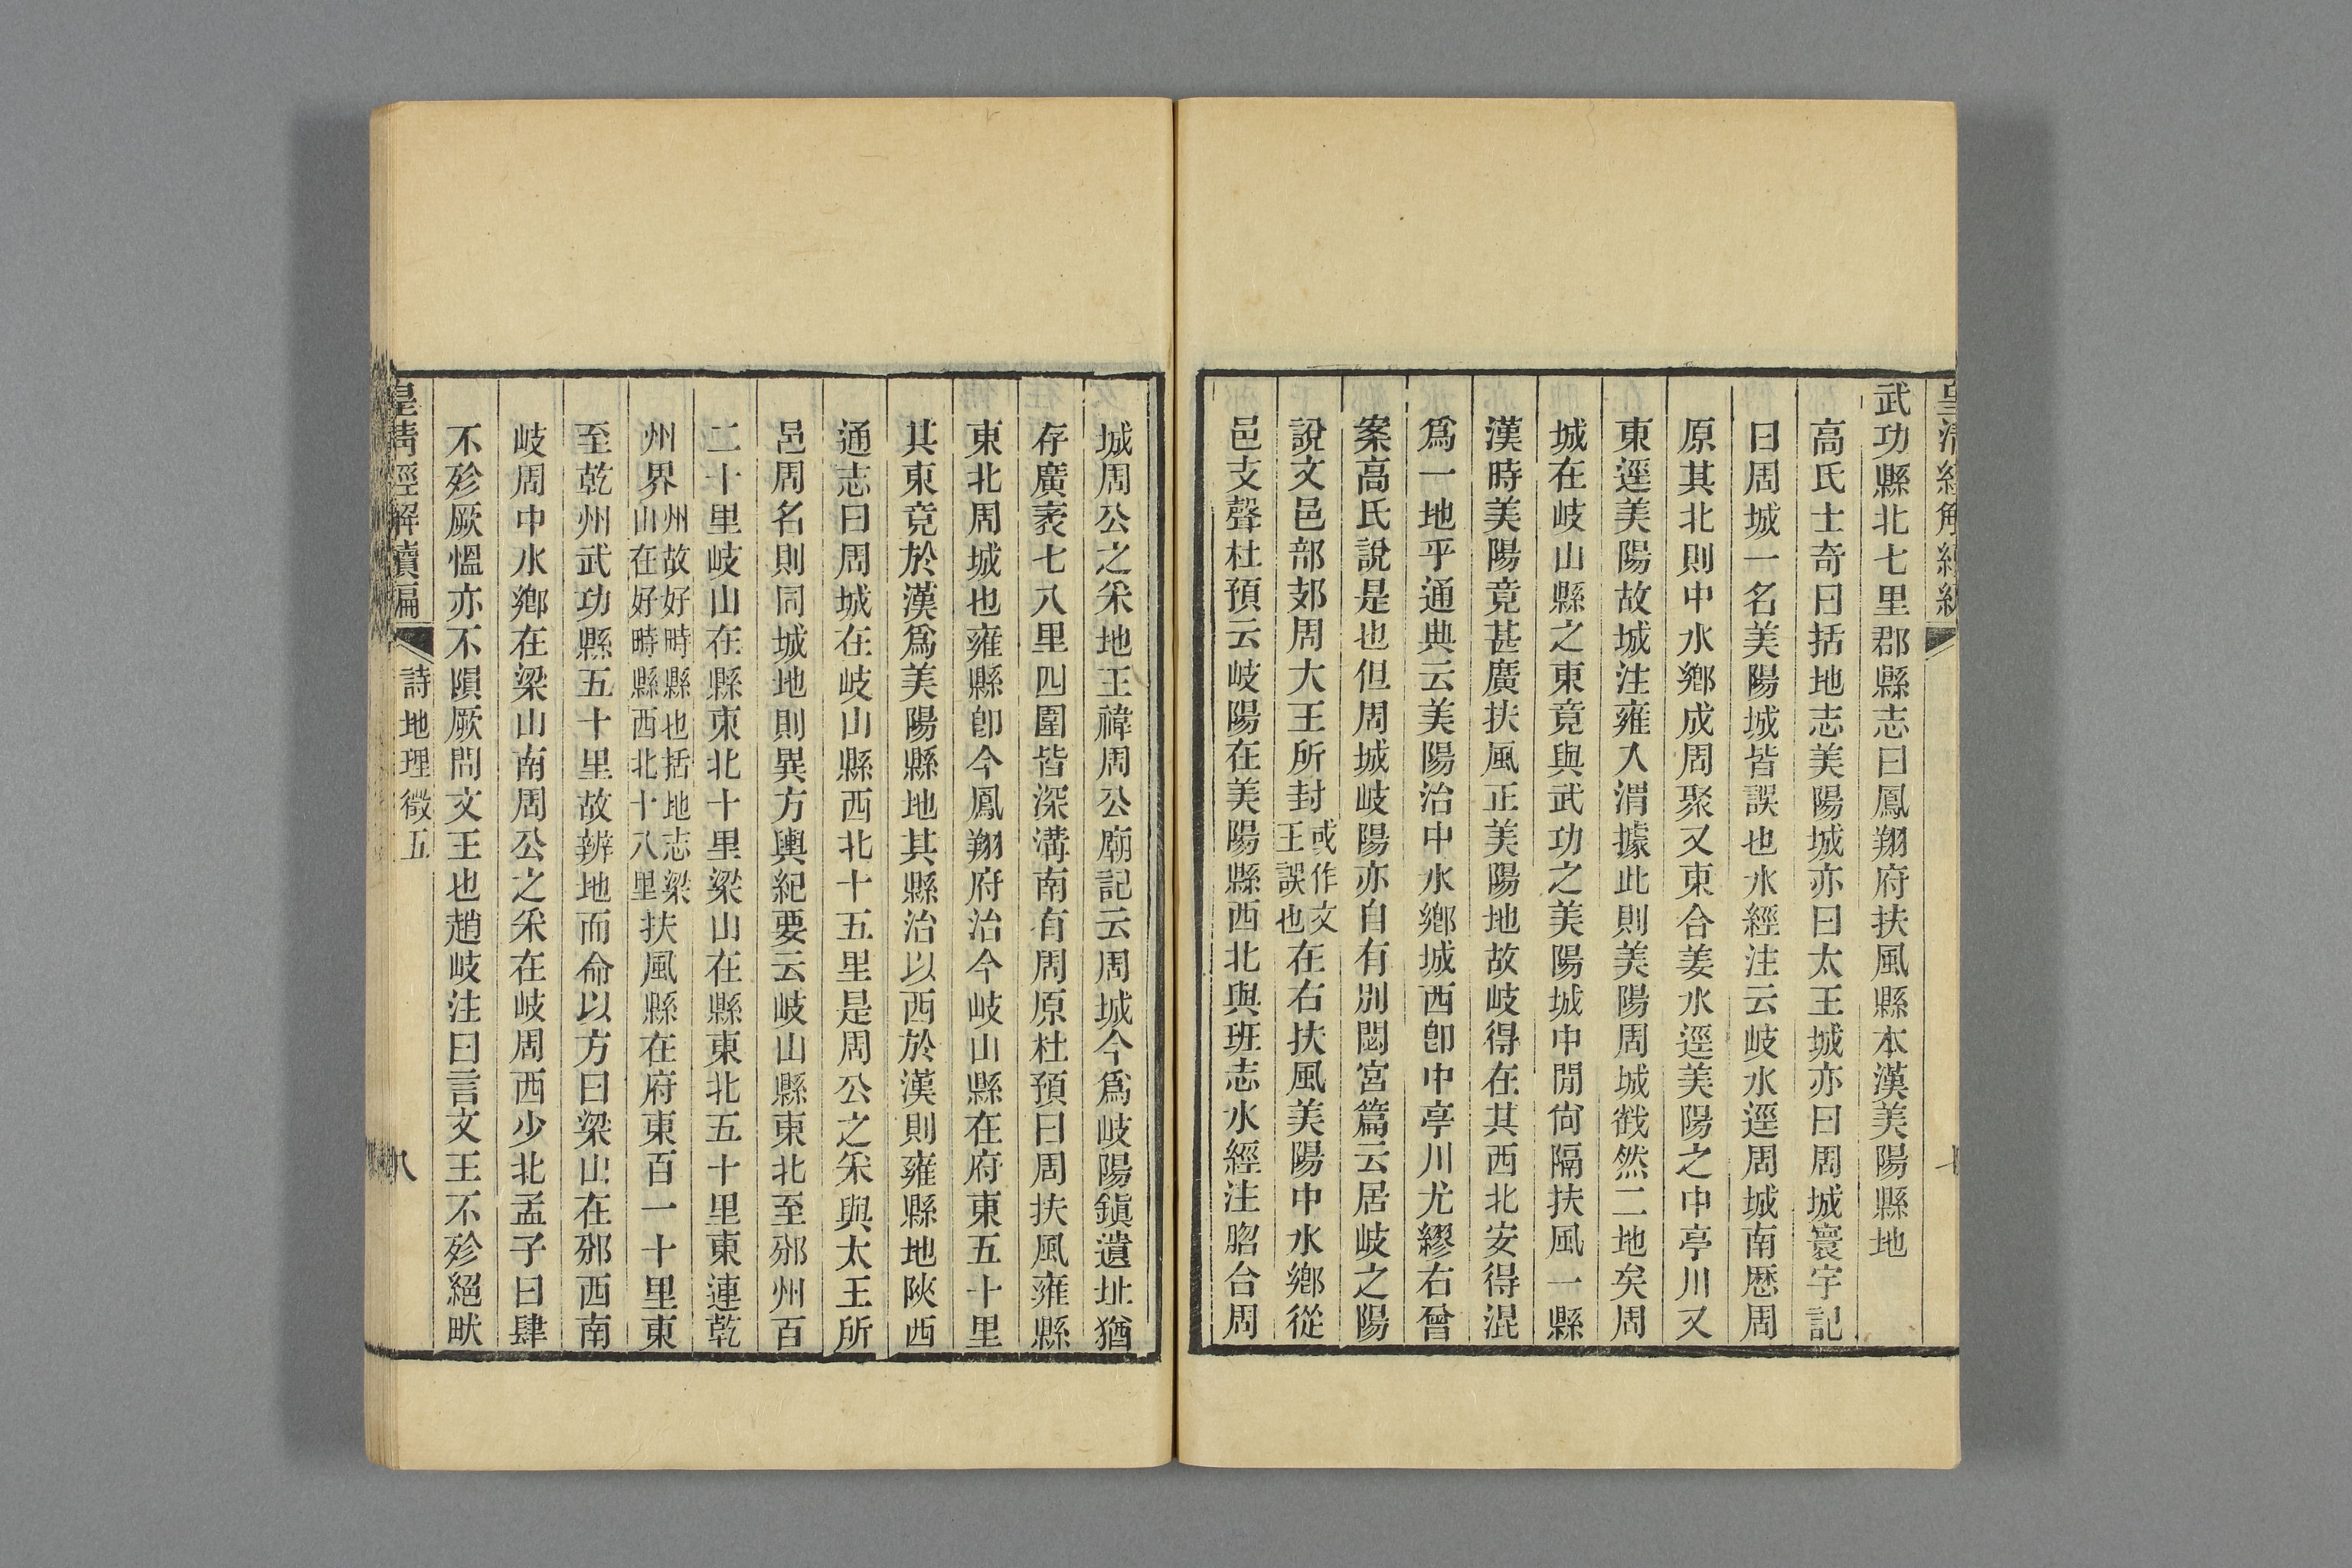 武功縣北七里郡縣志曰鳳翔府扶風縣本漢美陽縣地
高氏士奇曰括地志美陽城亦曰太王城亦曰周城寰宇記
曰周城一名美陽城皆誤也水經注云岐水逕周城南歷周
原其北則中水鄉成周聚又東合姜水逕美陽之中亭川又
東逕美陽故城注雍入渭據此則美陽周城截然二地矣周
城在岐山縣之東竟與武功之美陽城中閒尙隔扶風一縣
漢時美陽竟甚廣扶風正美陽地故岐得在其西北安得混
爲一地乎通典云美陽治中水鄉城西卽中亭川尤繆右曾
案高氏說是也但周城岐陽亦自有別閟宮篇云居岐之陽
說文邑部郊周大王所封或作文王誤也在右扶風美陽中水鄉從
邑支聲杜預云岐陽在美陽縣西北與班志水經注䏰合周
城周公之采地王褘周公廟記云周城今爲岐陽鎭遺址猶
存廣袤七八里四圍皆深溝南有周原杜預曰周扶風雍縣
東北周城也雍縣卽今鳳翔府治今岐山縣在府東五十里
其東竟於漢爲美陽縣地其縣治以西於漢則雍縣地陜西
通志曰周城在岐山縣西北十五里是周公之采與太王所
邑周名則同城地則異方輿紀要云岐山縣東北至邠州百
二十里岐山在縣東北十里梁山在縣東北五十里東連乾
州界州故好畤縣也括地志梁山在好畤縣西北十八里扶風縣在府東百一十里東
至乾州武功縣五十里故辨地而命以方曰梁山在邠西南
岐周中水鄉在梁山南周公之采在岐周西少北孟子曰肆
不殄厥慍亦不隕厥問文王也趙岐注曰言文王不殄絕畎
皇清經解續編 詩地理徵五 八